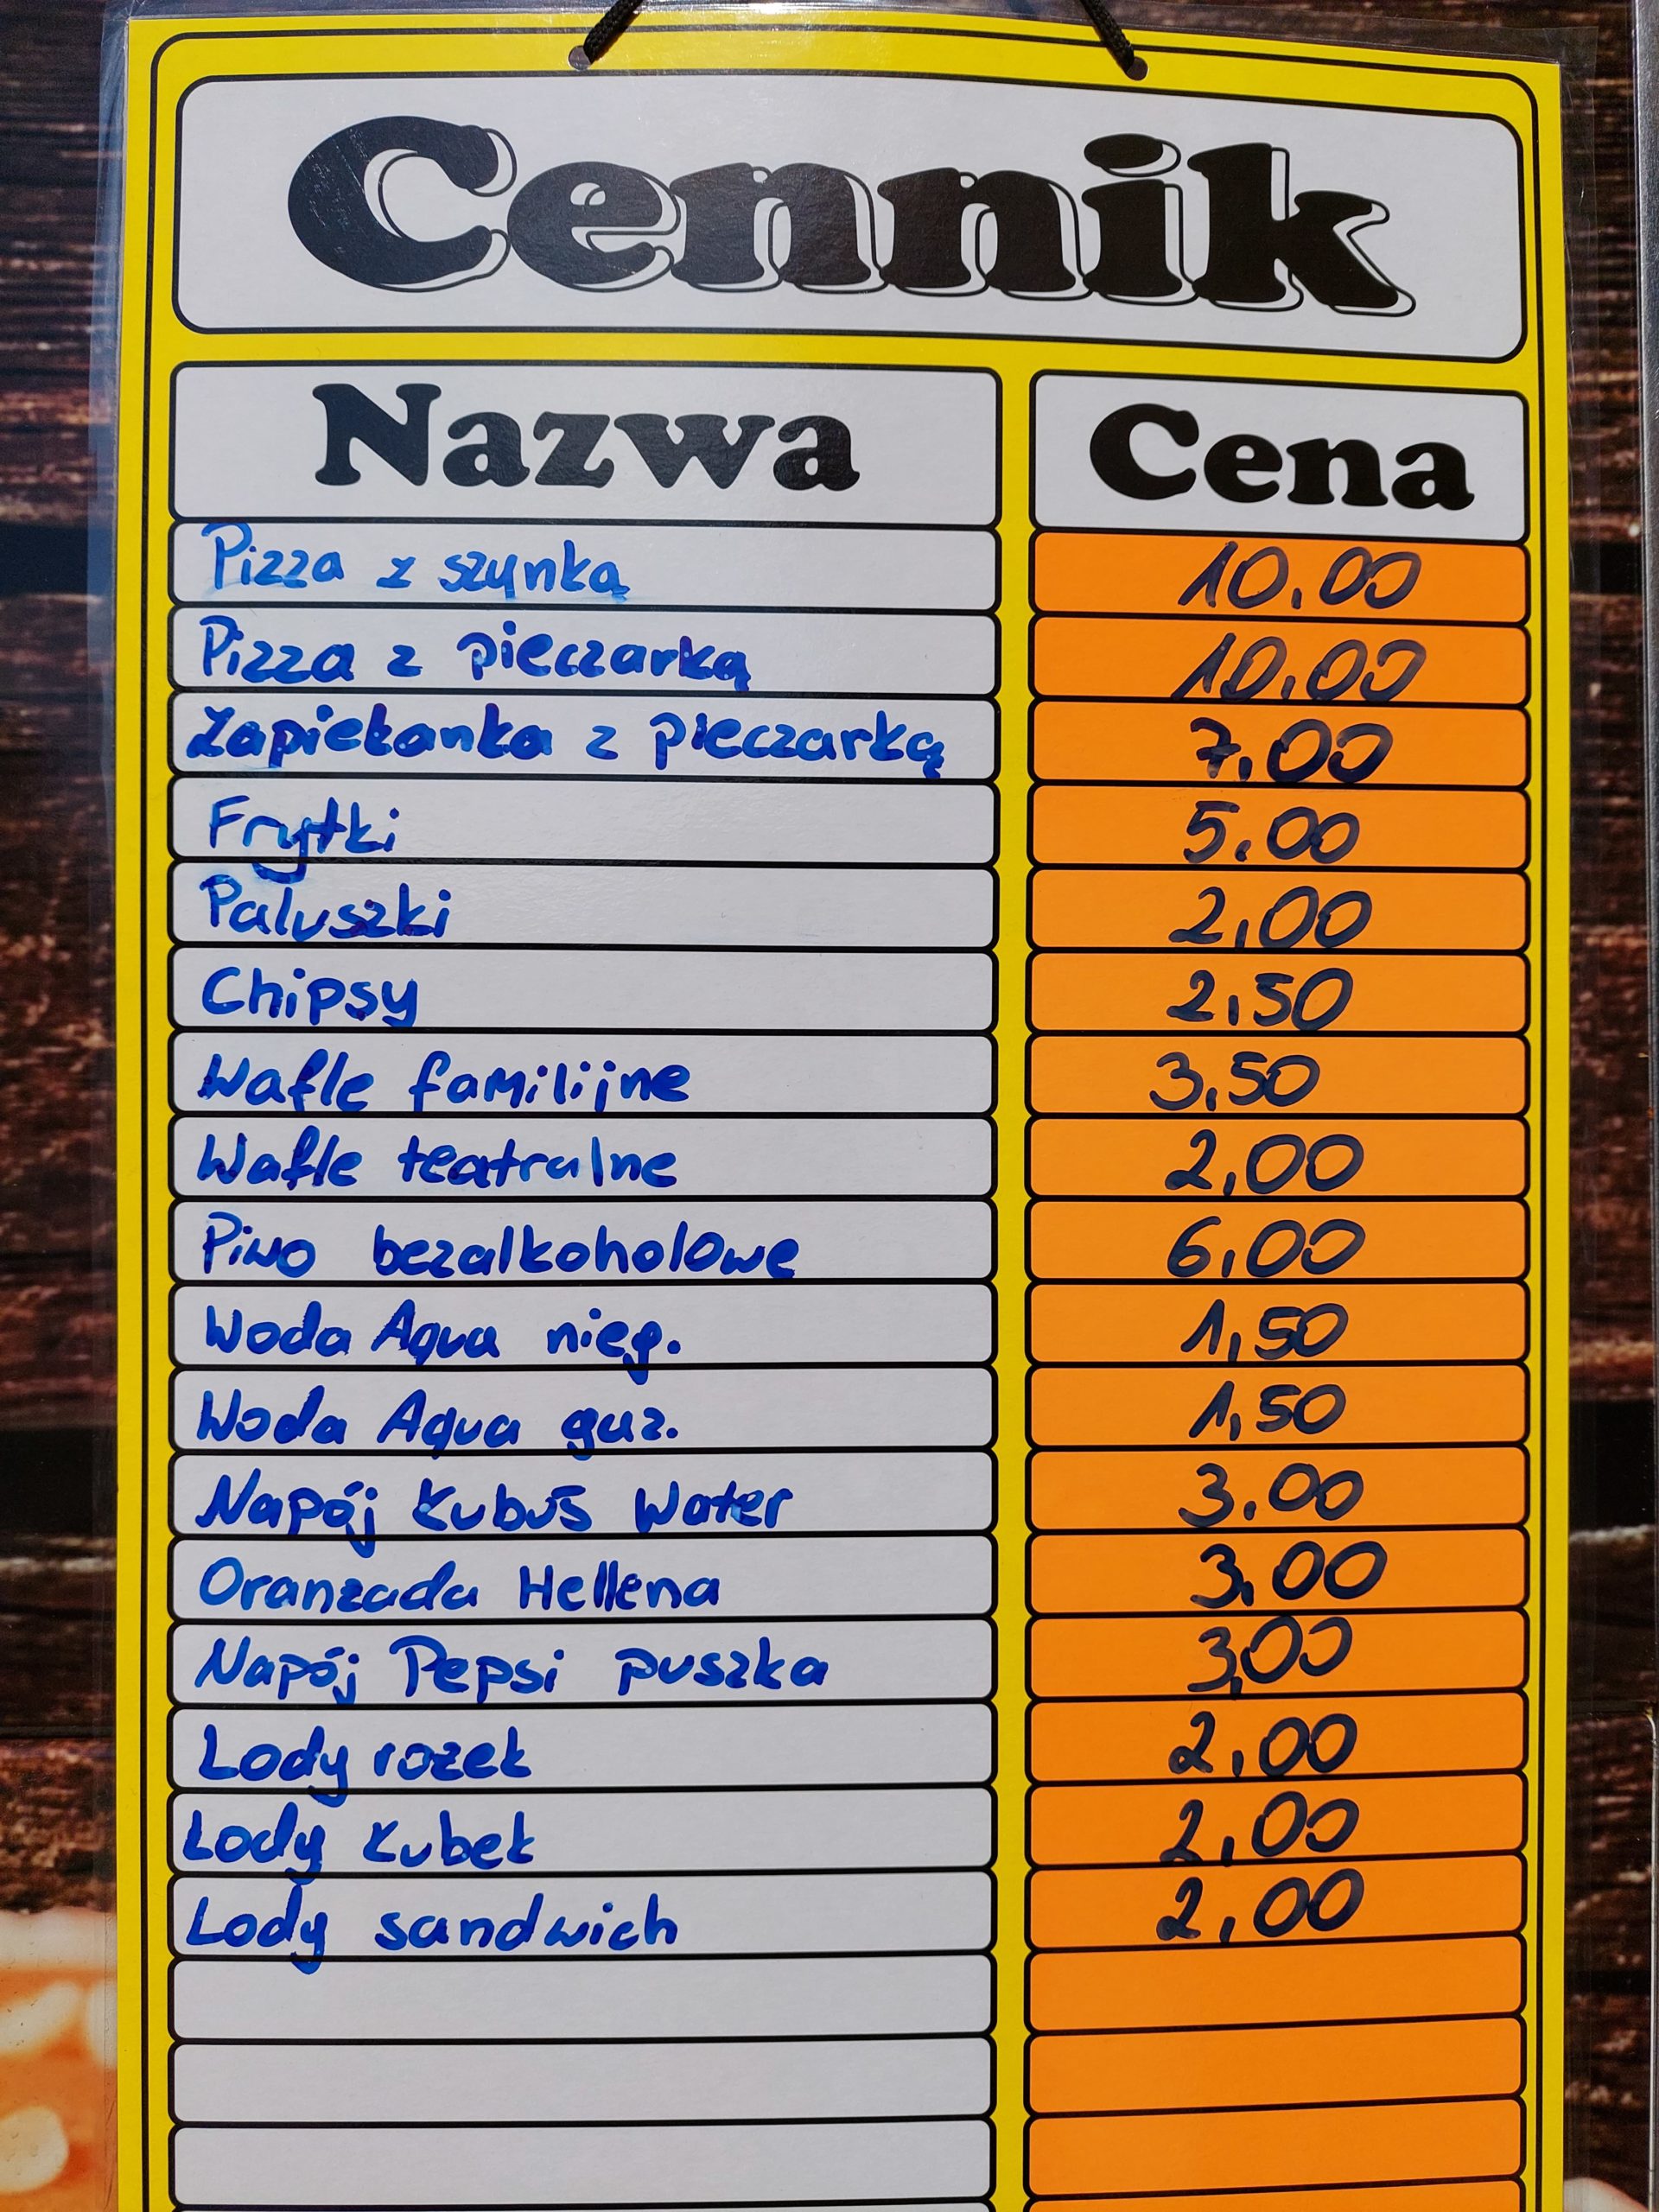 Cennik
Nazwa Cena
Pizza z szynką 10.00
Pizza z pieczarką 10.00
Zapiekanka z pieczarką 7.00
Frytki 5.00
Paluszki 2,00
Chipsy 2,50
Wafle familijne 3,50
Wafle teatralne 2,00
Piwo bezalkoholowe 6,00
Woda Aqua nieg. 1,50
Woda Aqua gaz. 1,50
Napój Kubuś Water 3.00
Oranzada Hellena 3,00
Napój Pepsi puszka 3,00
Lody rozek 2,00
Lody kubek 2,00
Lody sandwich 2,00